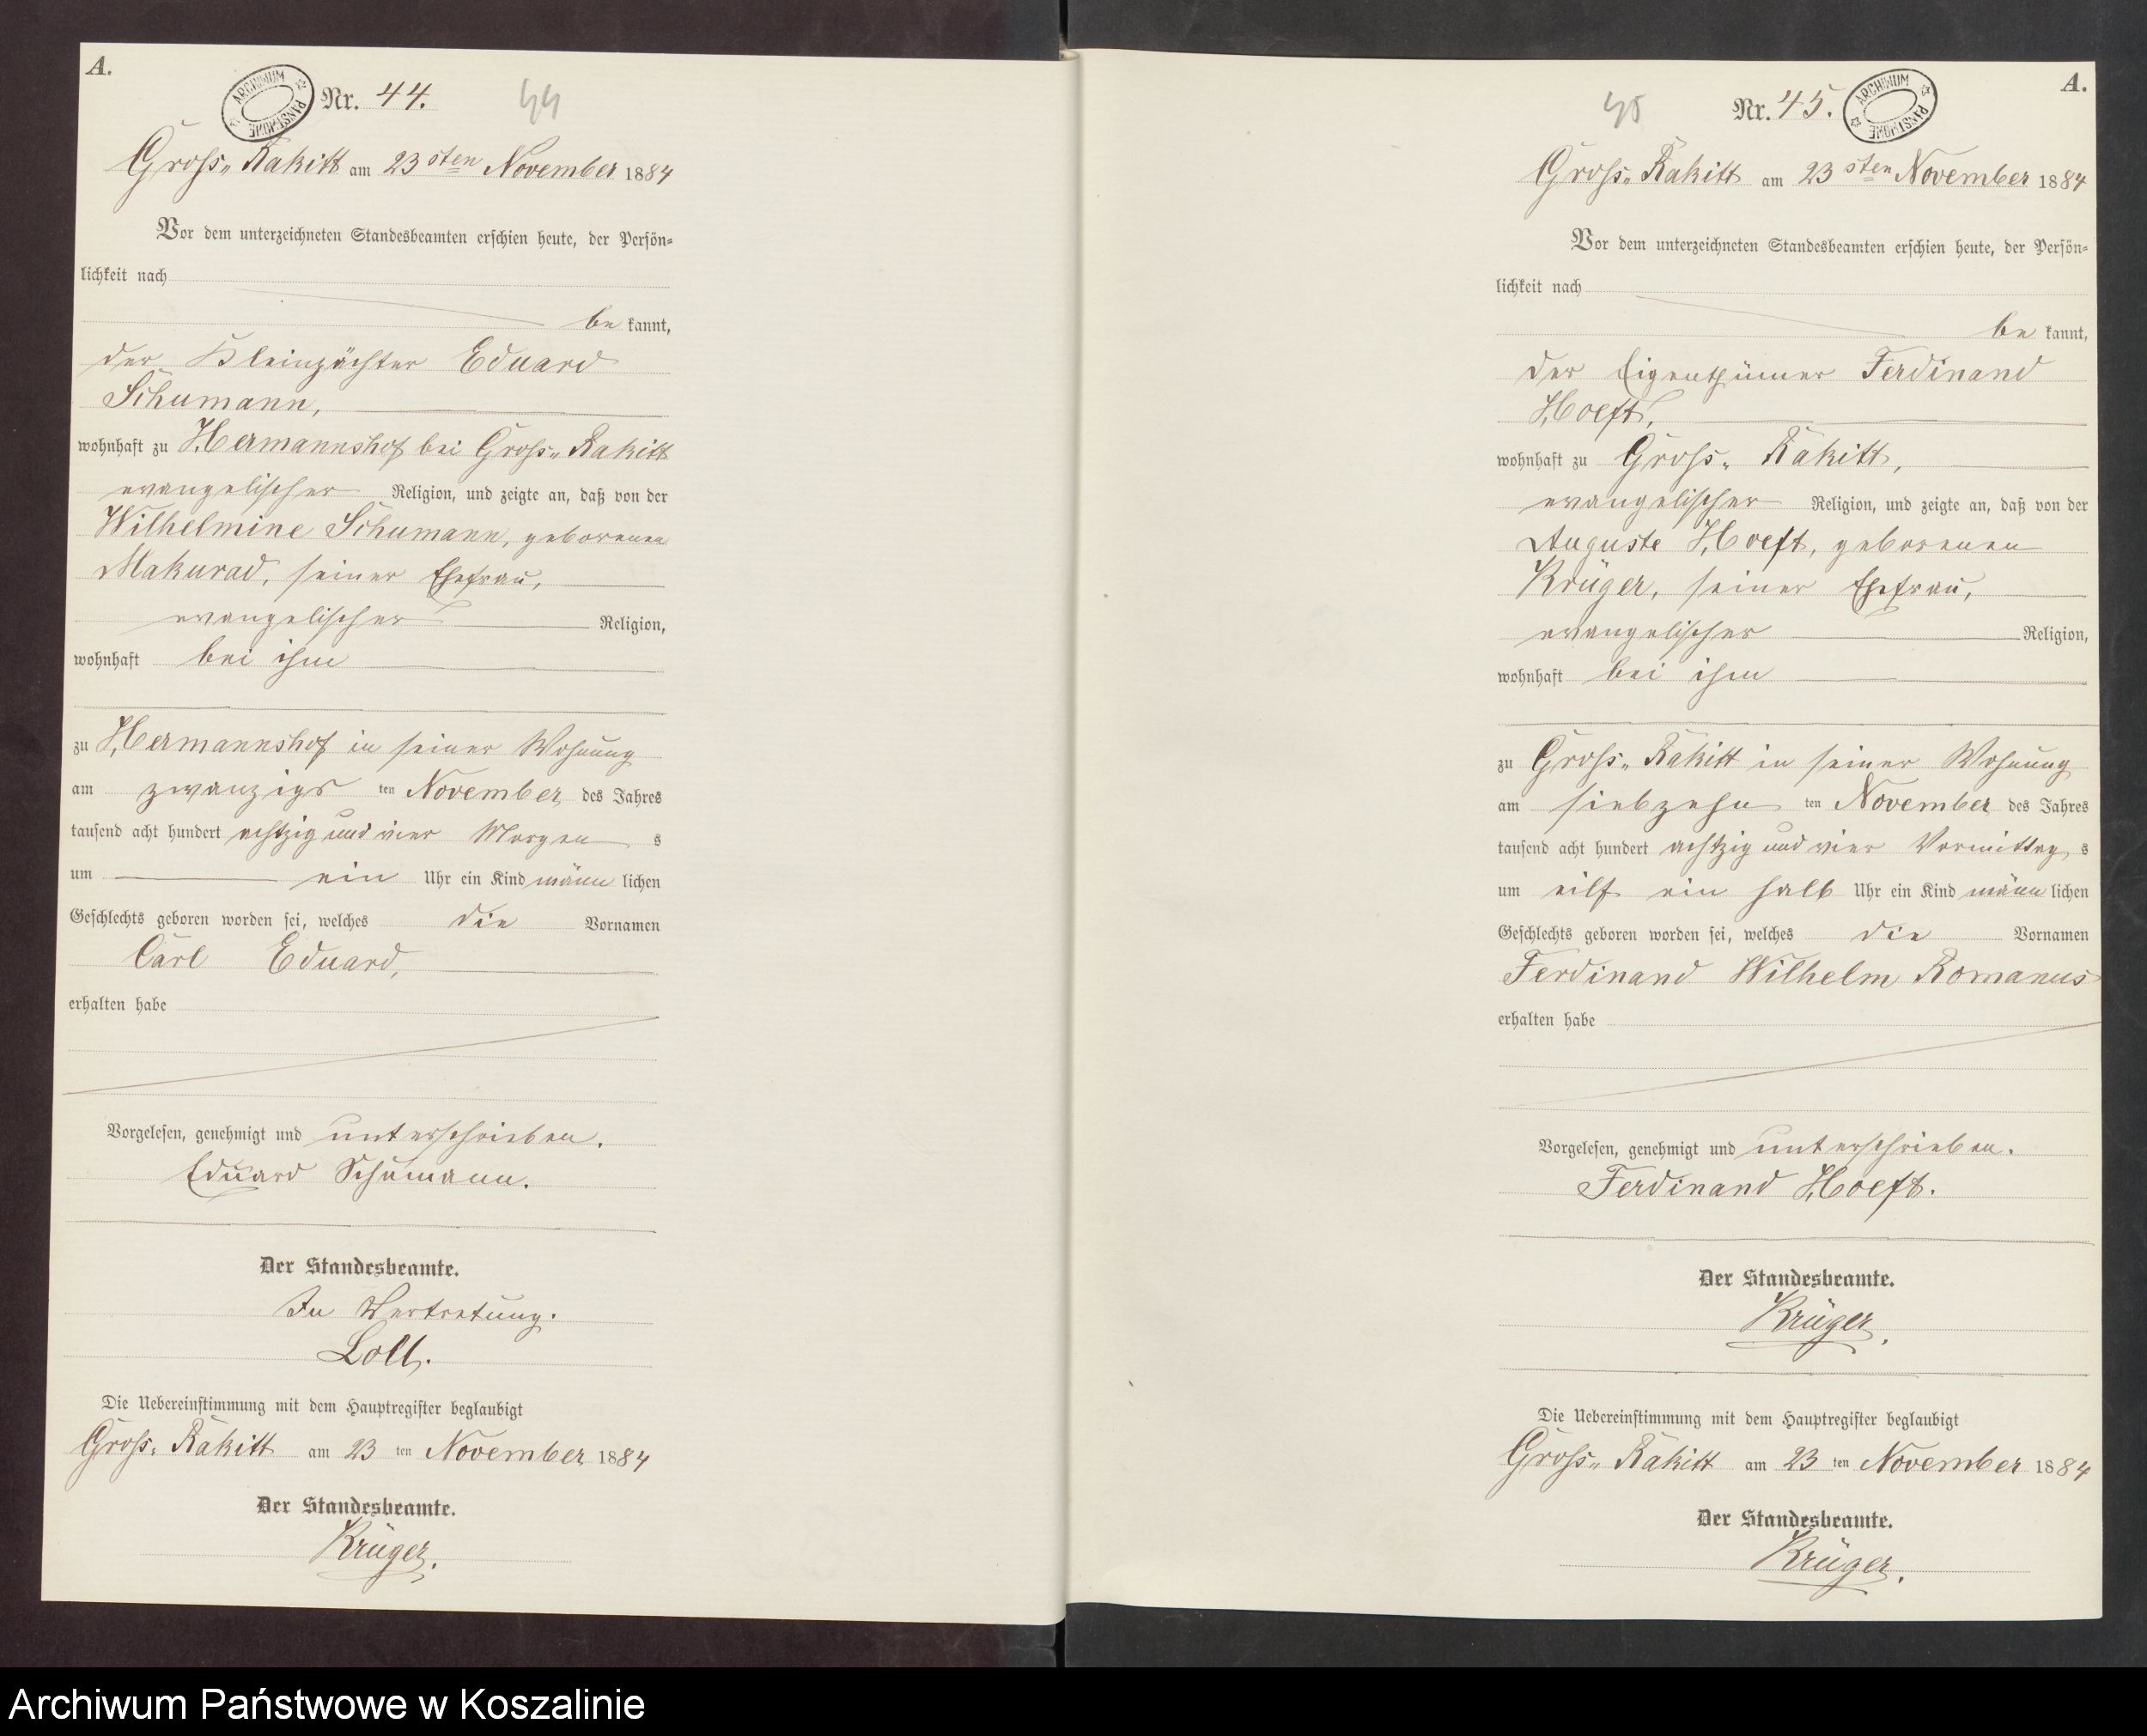 A.
ARCHIWUM PAŃSTWOWE
Nr. 44.
44
Gross„ Rakitt am 23sten November 1884
Vor dem unterzeichneten Standesbeamten erschien heute, der Persön-
lichkeit nach
be kannt,
der Kleinpächter Eduard
Schumann,
wohnhaft zu Hermannshof bei Gross„ Rakitt
evangelischer Religion, und zeigte an, daß von der
Wilhelmine Schumann, geborenen
Makurad, seiner Ehefrau,
evangelischer Religion,
wohnhaft bei ihm
zu Hermannshof in seiner Wohnung
am zwanzigs ten November des Jahres
tausend acht hundert achtzig und vier Morgen s
um ein Uhr ein Kind männ lichen
Geschlechts geboren worden sei, welches die Vornamen
Carl Eduard,
erhalten habe
Vorgelesen, genehmigt und unterschrieben.
Eduard Schumann.
Der Standesbeamte.
In Vertretung.
Loll.
Die Uebereinstimmung mit dem Hauptregister beglaubigt
Gross„ Rakitt am 23 ten November 1884
Der Standesbeamte.
Krüger.
A.
45
Nr. 45.
ARCHIWUM PAŃSTWOWE
Gross„ Rakitt am 23sten November 1884
Vor dem unterzeichneten Standesbeamten erschien heute, der Persön-
lichkeit nach
be kannt,
der Eigenthümer Ferdinand
Hoeft,
wohnhaft zu Gross„ Rakitt,
evangelischer Religion, und zeigte an, daß von der
Auguste Hoeft, geborenen
Krüger, seiner Ehefrau,
evangelischer Religion,
wohnhaft bei ihm
zu Gross„ Rakitt in seiner Wohnung
am siebzehn ten November des Jahres
tausend acht hundert achtzig und vier Vormittag s
um eilf ein halb Uhr ein Kind männ lichen
Geschlechts geboren worden sei, welches die Vornamen
Ferdinand Wilhelm Romanus
erhalten habe
Vorgelesen, genehmigt und unterschrieben.
Ferdinand Hoeft.
Der Standesbeamte.
Krüger.
Die Uebereinstimmung mit dem Hauptregister beglaubigt
Gross„ Rakitt am 23 ten November 1884
Der Standesbeamte.
Krüger.
Archiwum Państwowe w Koszalinie